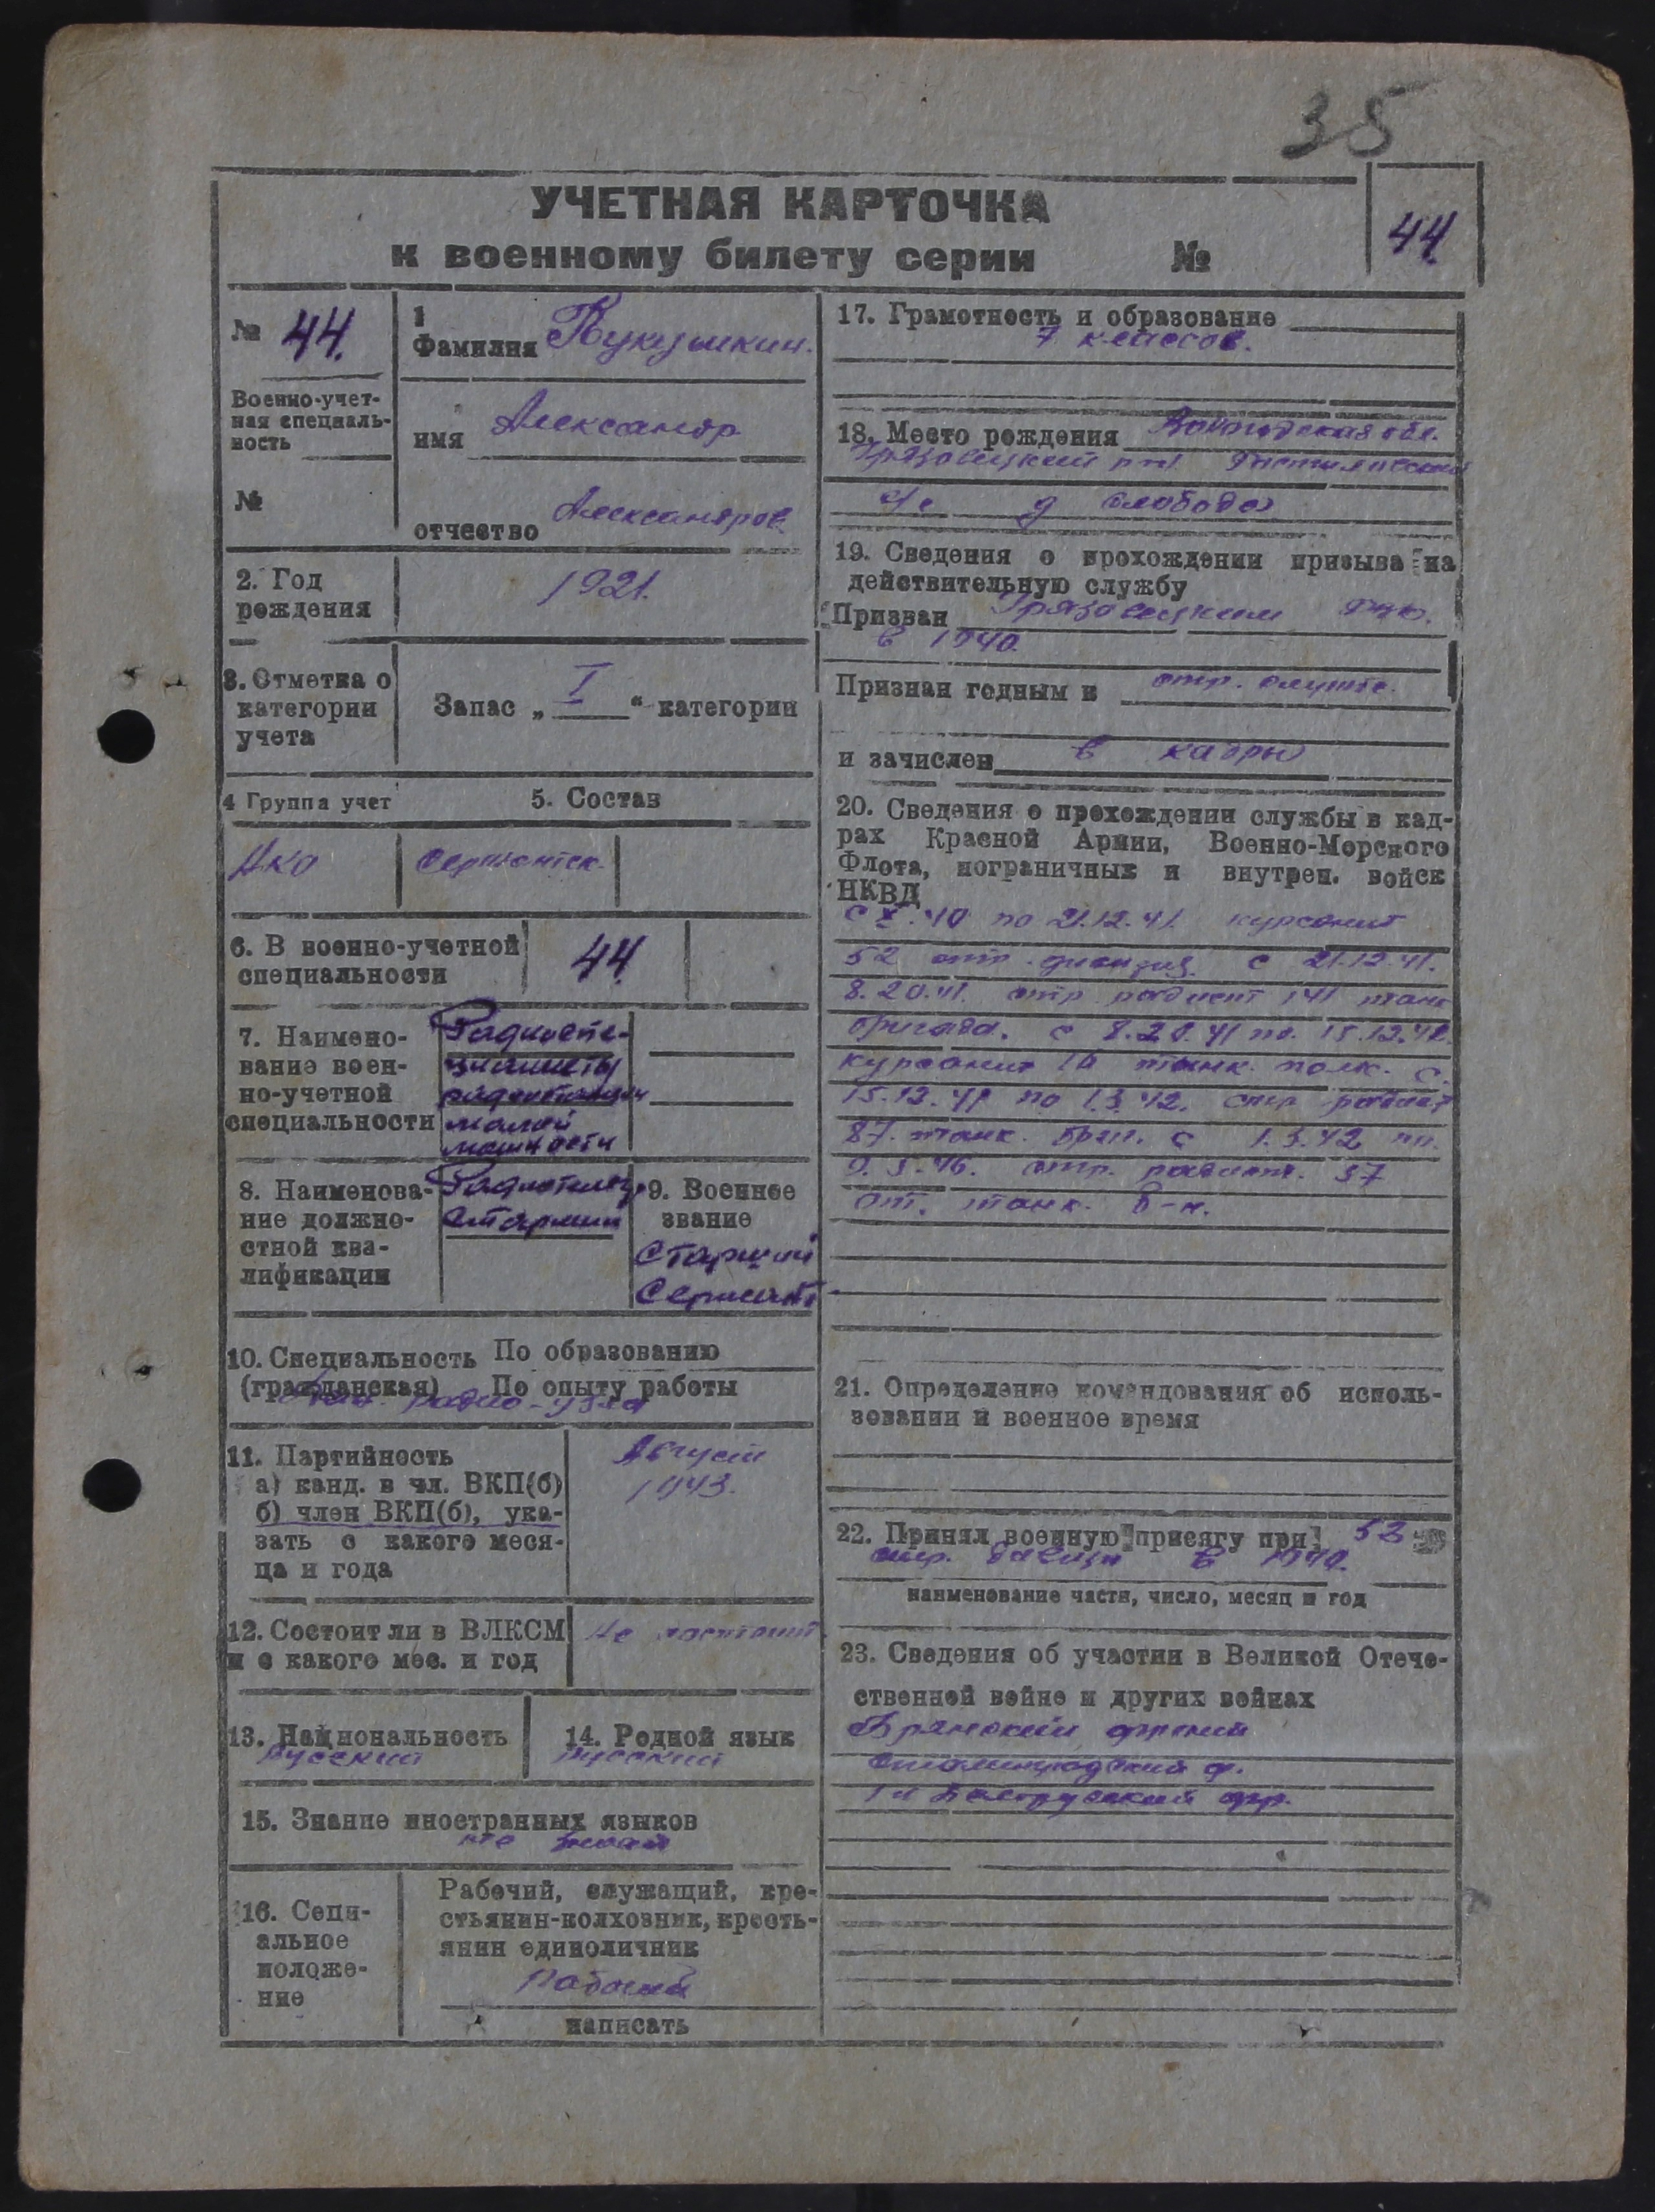 35
УЧЕТНАЯ КАРТОЧКА
к военному билету серии №
44.
№ 44.
Военно-учет-
ная специаль-
ность
№
1
Фамилия Кукушкин.
имя Александр
отчество Александров.
2. Год
рождения
1921.
3. Отметка о
категории
учета
Запас „ I “ категории
4 Группа учет
5. Состав
Сержантск.
6. В военно-учетной
специальности
44.
7. Наимено-
вание воен-
но-учетной
специальности
Радиоспе-
циалисты
радиостанции
малой
мощности
8. Наименова-
ние должно-
стной ква-
лификации
старший
9. Военное
звание
Старший
Сержант
10. Специальность По образованию
(гражданская) По опыту работы
радио-узла
11. Партийность
а) канд. в чл. ВКП(б)
б) член ВКП(б), ука-
зать с какого меся-
ца и года
Август
1943.
12. Состоит ли в ВЛКСМ
и с какого мес. и год
Не состоит
13. Национальность
русский
14. Родной язык
русский
15. Знание иностранных языков
не знает
16. Соци-
альное
положе-
ние
Рабочий, служащий, кре-
стьянин-колхозник, кресть-
янин единоличник
Рабочий
написать
17. Грамотность и образование
7 классов.
18. Место рождения Вологодская обл.
Грязовецкий
с/с д слобода
19. Сведения о прохождении призыва на
действительную службу
Призван Грязовецким РВК.
в 1940.
Признан годным к стр. службе.
и зачислен в кадры
20. Сведения о прохождении службы в кад-
рах Красной Армии, Военно-Морского
Флота, пограничных и внутрен. войск
НКВД
с X.40 по 21.12.41. курсант
52 стр. дивизия с 21.12.41.
8.20.41. стр. радист 141 танк
бригада. с 8.20.41 по 15.12.41.
курсант танк. полк. с.
15.12.41 по 1.3.42. стр радист
87. танк. бриг. с 1.3.42 по
9.5.46. стр. радист. 37
от. танк. б-н.
21. Определение командования об исполь-
зовании и военное время
22. Принял военную присягу при 52
стр. в 1940.
наименование части, число, месяц и год
23. Сведения об участии в Великой Отече-
ственной войне и других войнах
Брянский фронт
Сталинградский ф.
1й Белорусский фр.